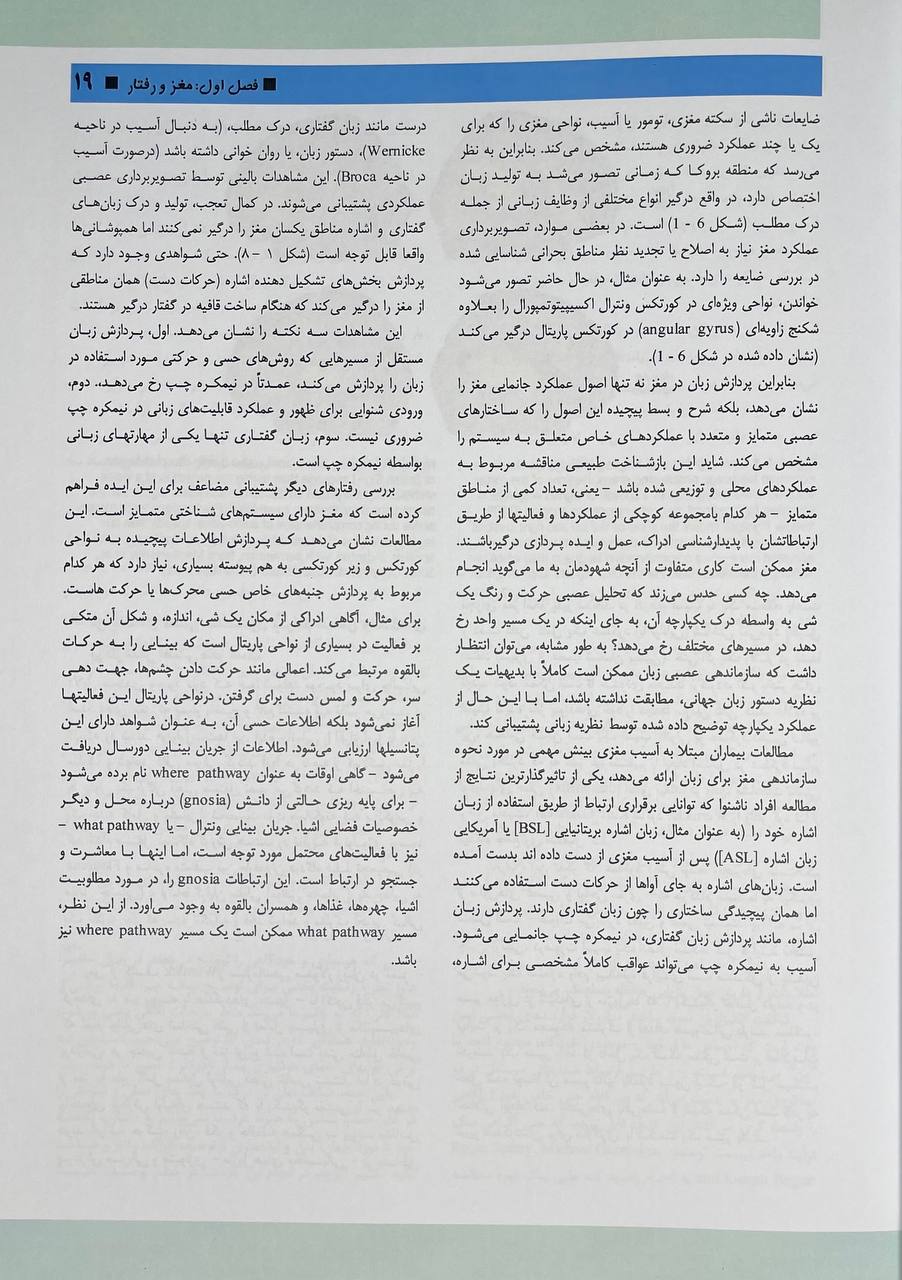 ■ فصل اول: مغز و رفتار ■ ۱۹
ضایعات ناشی از سکته مغزی، تومور یا آسیب، نواحی مغزی را که برای
یک یا چند عملکرد ضروری هستند، مشخص می‌کند. بنابراین به نظر
می‌رسد که منطقه بروکا که زمانی تصور می‌شد به تولید زبان
اختصاص دارد، در واقع درگیر انواع مختلفی از وظایف زبانی از جمله
درک مطلب (شکل 6 - 1) است. در بعضی موارد، تصویربرداری
عملکرد مغز نیاز به اصلاح یا تجدید نظر مناطق بحرانی شناسایی شده
در بررسی ضایعه را دارد. به عنوان مثال، در حال حاضر تصور می‌شود
خواندن، نواحی ویژه‌ای در کورتکس ونترال اکسیپیتوتمپورال را بعلاوه
شکنج زاویه‌ای (angular gyrus) در کورتکس پاریتال درگیر می‌کند
(نشان داده شده در شکل 6 - 1).
بنابراین پردازش زبان در مغز نه تنها اصول عملکرد جانمایی مغز را
نشان می‌دهد، بلکه شرح و بسط پیچیده این اصول را که ساختارهای
عصبی متمایز و متعدد با عملکردهای خاص متعلق به سیستم را
مشخص می‌کند. شاید این بازشناخت طبیعی مناقشه مربوط به
عملکردهای محلی و توزیعی شده باشد – یعنی، تعداد کمی از مناطق
متمایز – هر کدام بامجموعه کوچکی از عملکردها و فعالیتها از طریق
ارتباطاتشان با پدیدارشناسی ادراک، عمل و ایده پردازی درگیرباشند.
مغز ممکن است کاری متفاوت از آنچه شهودمان به ما می‌گوید انجام
می‌دهد. چه کسی حدس می‌زند که تحلیل عصبی حرکت و رنگ یک
شی به واسطه درک یکپارچه آن، به جای اینکه در یک مسیر واحد رخ
دهد، در مسیرهای مختلف رخ می‌دهد؟ به طور مشابه، می‌توان انتظار
داشت که سازماندهی عصبی زبان ممکن است کاملاً با بدیهیات یک
نظریه دستور زبان جهانی، مطابقت نداشته باشد، اما با این حال از
عملکرد یکپارچه توضیح داده شده توسط نظریه زبانی پشتیبانی کند.
مطالعات بیماران مبتلا به آسیب مغزی بینش مهمی در مورد نحوه
سازماندهی مغز برای زبان ارائه می‌دهد، یکی از تاثیرگذارترین نتایج از
مطالعه افراد ناشنوا که توانایی برقراری ارتباط از طریق استفاده از زبان
اشاره خود را (به عنوان مثال، زبان اشاره بریتانیایی [BSL] یا آمریکایی
زبان اشاره [ASL]) پس از آسیب مغزی از دست داده اند بدست آمده
است. زبان‌های اشاره به جای آواها از حرکات دست استفاده می‌کنند
اما همان پیچیدگی ساختاری را چون زبان گفتاری دارند. پردازش زبان
اشاره، مانند پردازش زبان گفتاری، در نیمکره چپ جانمایی می‌شود.
آسیب به نیمکره چپ می‌تواند عواقب کاملاً مشخصی برای اشاره،
درست مانند زبان گفتاری، درک مطلب، (به دنبال آسیب در ناحیه
Wernicke)، دستور زبان، یا روان خوانی داشته باشد (درصورت آسیب
در ناحیه Broca). این مشاهدات بالینی توسط تصویربرداری عصبی
عملکردی پشتیبانی می‌شوند. در کمال تعجب، تولید و درک زبان‌های
گفتاری و اشاره مناطق یکسان مغز را درگیر نمی‌کنند اما همپوشانی‌ها
واقعا قابل توجه است (شکل ۱ – ۸). حتی شواهدی وجود دارد که
پردازش بخش‌های تشکیل دهنده اشاره (حرکات دست) همان مناطقی
از مغز را درگیر می‌کند که هنگام ساخت قافیه در گفتار درگیر هستند.
این مشاهدات سه نکته را نشان می‌دهد. اول، پردازش زبان
مستقل از مسیرهایی که روش‌های حسی و حرکتی مورد استفاده در
زبان را پردازش می‌کند، عمدتاً در نیمکره چپ رخ می‌دهد،. دوم،
ورودی شنوایی برای ظهور و عملکرد قابلیت‌های زبانی در نیمکره چپ
ضروری نیست. سوم، زبان گفتاری تنها یکی از مهارتهای زبانی
بواسطه نیمکره چپ است.
بررسی رفتارهای دیگر پشتیبانی مضاعف برای این ایده فراهم
کرده است که مغز دارای سیستم‌های شناختی متمایز است. این
مطالعات نشان می‌دهد که پردازش اطلاعات پیچیده به نواحی
کورتکس و زیر کورتکسی به هم پیوسته بسیاری، نیاز دارد که هر کدام
مربوط به پردازش جنبه‌های خاص حسی محرک‌ها یا حرکت هاست.
برای مثال، آگاهی ادراکی از مکان یک شی، اندازه، و شکل آن متکی
بر فعالیت در بسیاری از نواحی پاریتال است که بینایی را به حرکات
بالقوه مرتبط می‌کند. اعمالی مانند حرکت دادن چشم‌ها، جهت دهی
سر، حرکت و لمس دست برای گرفتن. درنواحی پاریتال این فعالیتها
آغاز نمی‌شود بلکه اطلاعات حسی آن، به عنوان شواهد دارای این
پتانسیلها ارزیابی می‌شود. اطلاعات از جریان بینایی دورسال دریافت
می‌شود – گاهی اوقات به عنوان where pathway نام برده می‌شود
– برای پایه ریزی حالتی از دانش (gnosia) درباره محل و دیگر
خصوصیات فضایی اشیا. جریان بینایی ونترال – یا what pathway –
نیز با فعالیت‌های محتمل مورد توجه است، اما اینها با معاشرت و
جستجو در ارتباط است. این ارتباطات gnosia را، در مورد مطلوبیت
اشیا، چهره‌ها، غذاها، و همسران بالقوه به وجود می‌اورد. از این نظر،
مسیر what pathway ممکن است یک مسیر where pathway نیز
باشد.